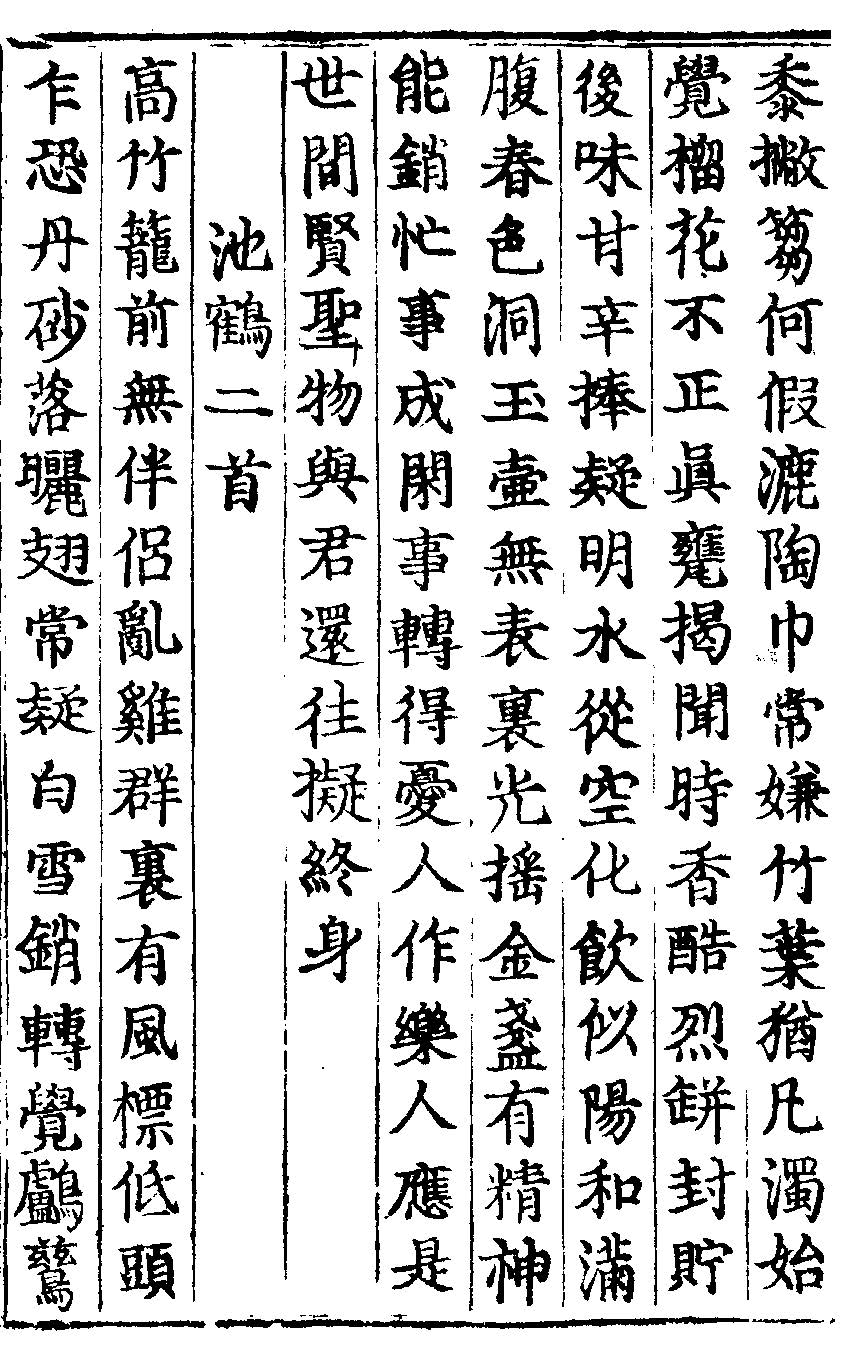 黍撇篘何假漉陶巾常嫌竹葉猶凡濁始
覺榴花不正眞甕揭聞時香酷烈缾封貯
後味甘辛捧疑明水從空化飲似陽和滿
腹春色洞玉壷無表裏光摇金盞有精神
能銷忙事成閑事轉得憂人作樂人應是
世間賢聖物與君還往擬終身
池鶴二首
高竹籠前無伴侣亂雞群裏有風標低頭
乍恐丹砂落曬翅常疑白雪銷轉覺鸕鶿